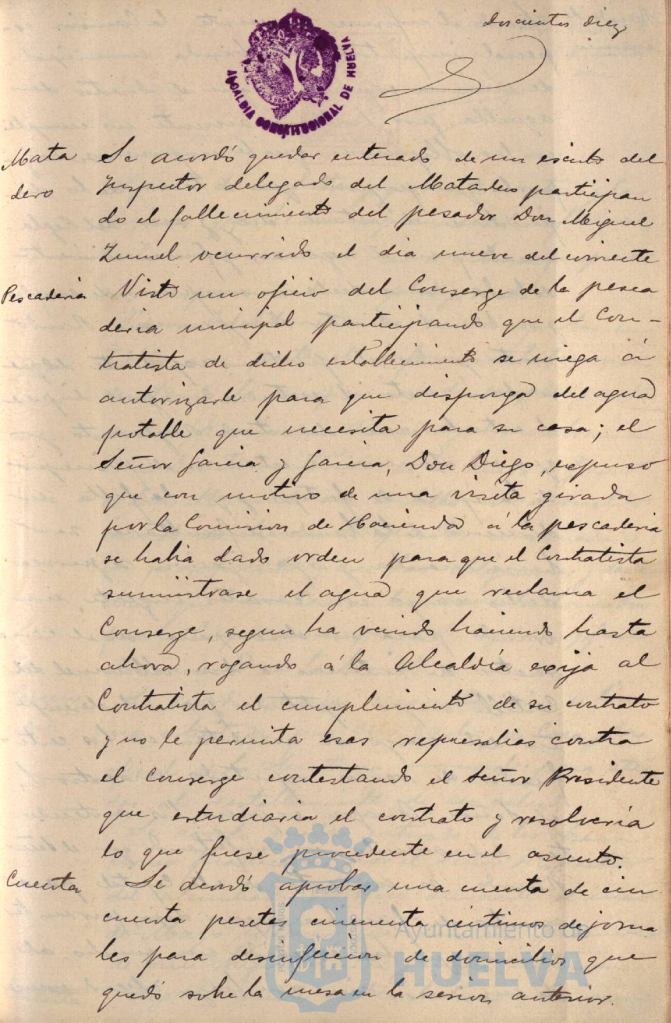 doscientos diez
ALCALDIA CONSTITUCIONAL DE HUELVA
Mata
dero
Se acordó quedar enterado de un escrito del
Inspector delegado del Matadero participan
do el fallecimiento del pesador Don Miguel
Zunel ocurrido el dia nueve del corriente
Pescaderia
Visto un oficio del Conserge de la pesca
deria municipal participando que el Con-
tratista de dicho establecimiento se niega á
autorizarle para que disponga del agua
potable que necesita para su casa; el
Señor Garcia y Garcia, Don Diego, expuso
que con motivo de una visita girada
por la Comision de Hacienda á la pescaderia
se habia dado orden para que el Contratista
suministrase el agua que reclama el
Conserge, segun ha venido haciendo hasta
ahora, rogando á la Alcaldía exija al
Contratista el cumplimiento de su contrato
y no le permita esas represalias contra
el Conserge contestando el Señor Presidente
que estudiaria el contrato y resolvería
lo que fuese procedente en el asunto.
Cuenta
Se acordó aprobar una cuenta de cin
cuenta pesetas cincuenta centimos de jorna
les para desinfeccion de domicilios que
quedó sobre la mesa en la sesion anterior.
Ayuntamiento de
HUELVA